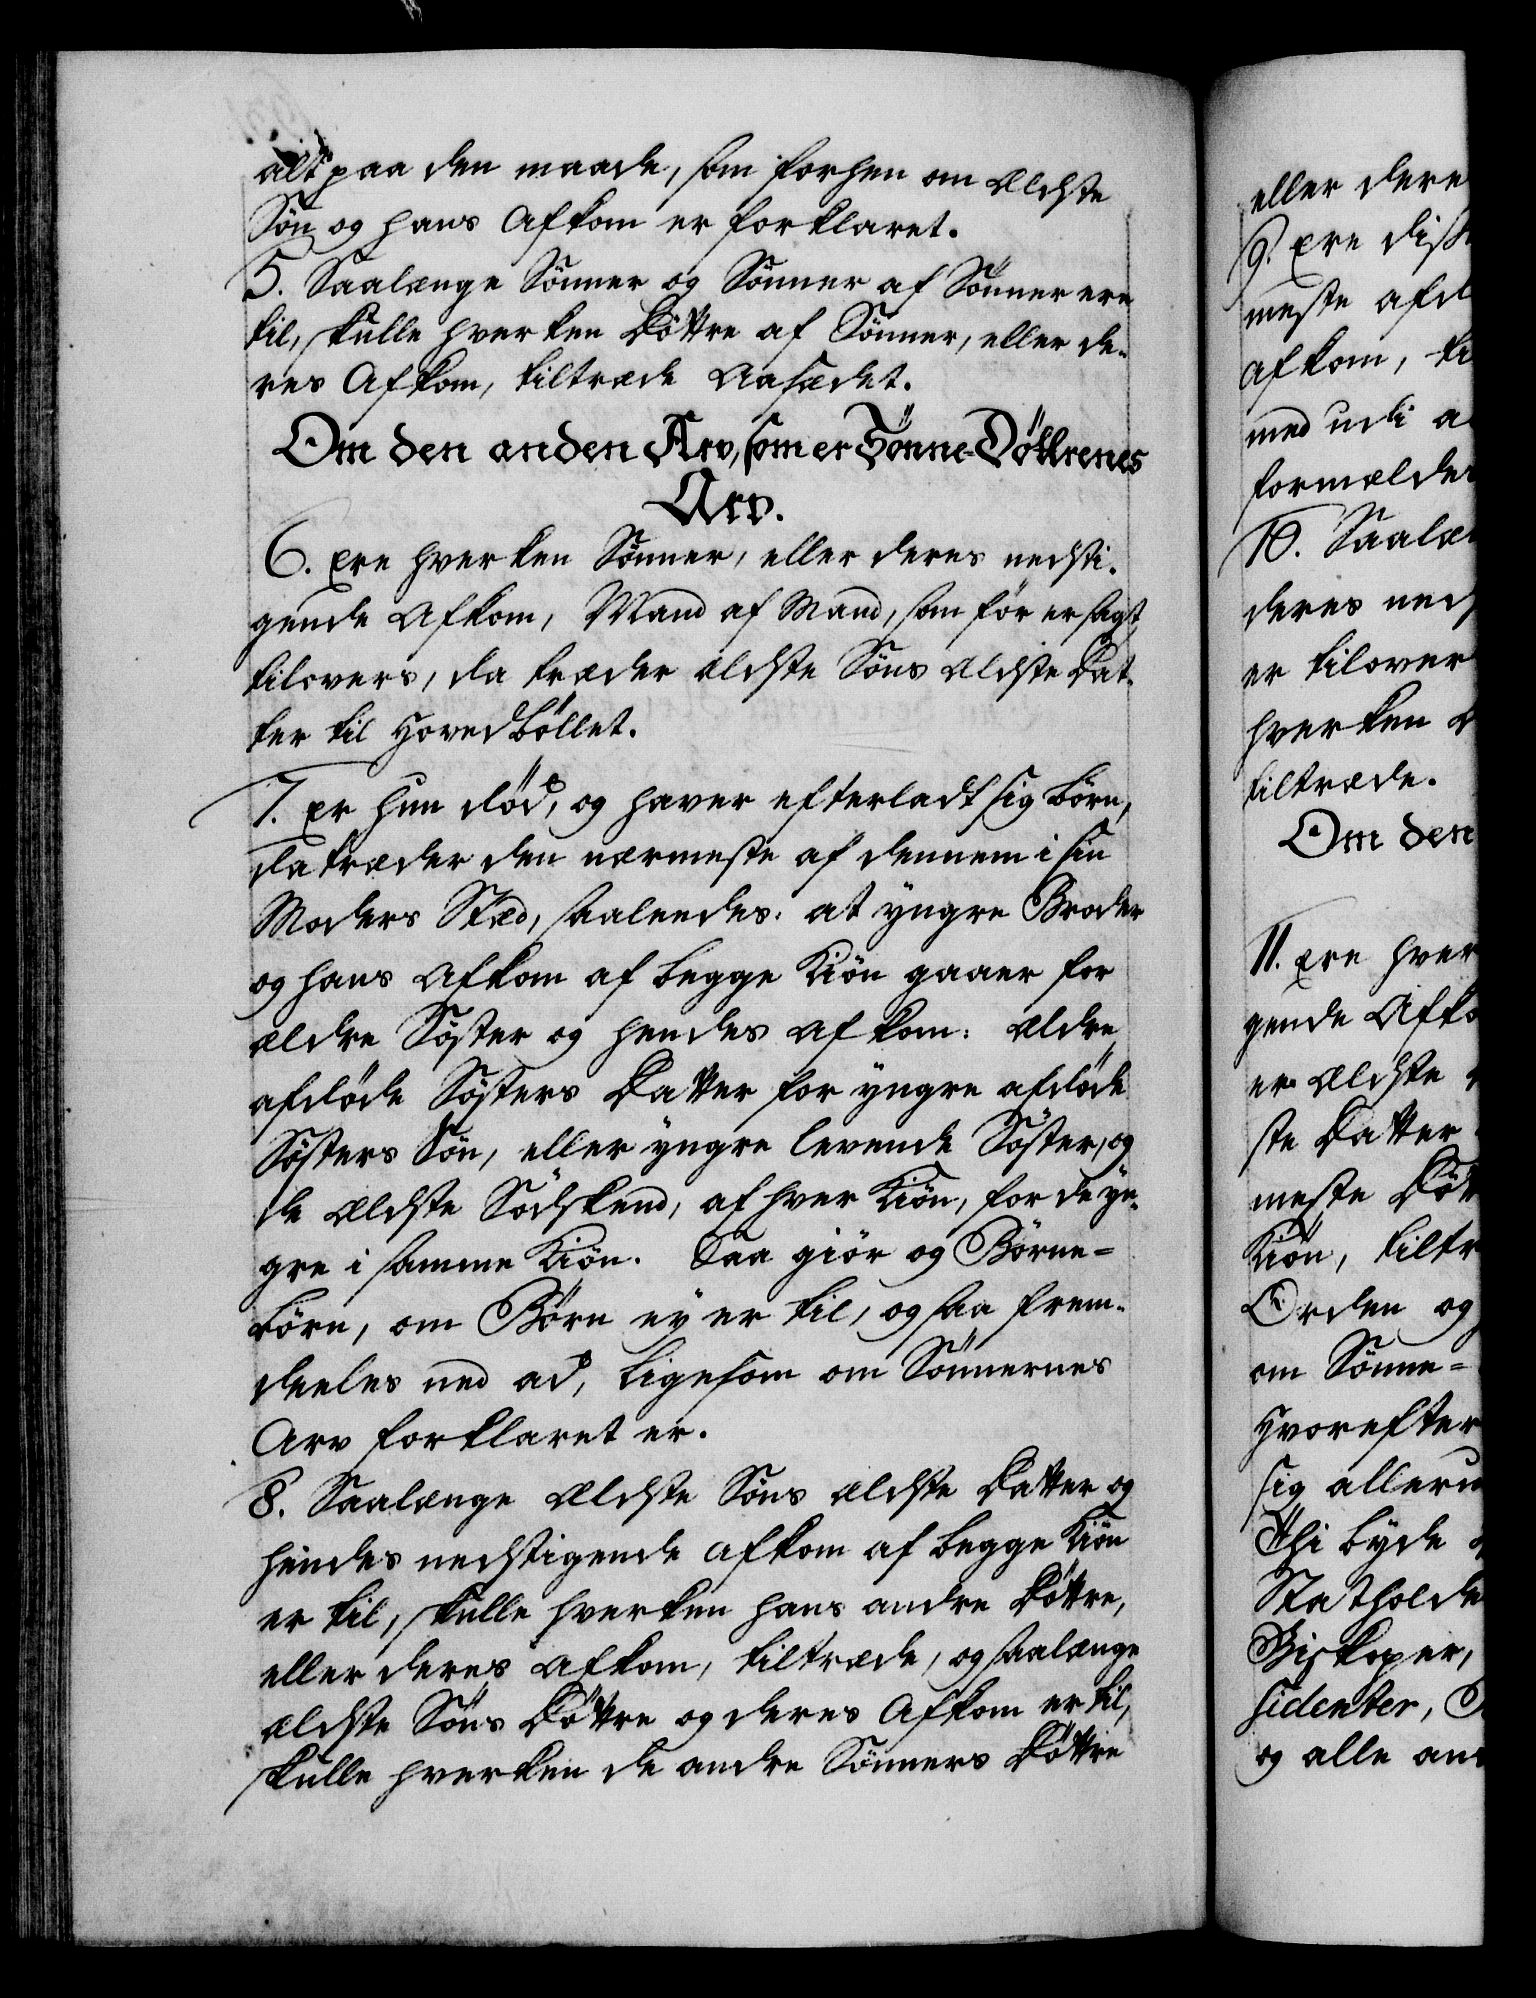 alt paa den maade, som forhen om Ældste
Søn og hans Afkom er forklaret.
5. Saalænge Sönner og Sönner af Sönner ere
til, skulle hverken Döttre af Sönner, eller de-
res Afkom, tiltræde Aasædet.
Om den anden Arv, som er Sönne-Döttrenes
Arv.
6. Ere hverken Sönner, eller deres nedsti-
gende Afkom, Mand af Mand, som för er sagt,
tilovers, da træder ældste Söns Ældste Dat-
ter til Hovedböllet.
7. Er hun död, og haver efterladt sig börn,
da træder den nærmeste af dennem i sin
Moders Stæd, saaledes: at yngre Broder
og hans Afkom af begge Kiön gaaer for
ældre Söster og hendes Afkom: Ældre
afdöde Sösters Datter for yngre afdöde
Sösters Sön, eller yngre levende Söster, og
de Ældste Södskend, af hver Kiön, for de yn-
gre i samme Kiön. Saa giör og Börne-
börn, om Börn ey er til, og saa frem-
deeles ned ad, ligesom om Sönnernes
Arv forklaret er.
8. Saalænge Ældste Söns ældste Datter og
hendes nedstigende Afkom af begge Kiön
er til, skulle hverken hans andre Döttre,
eller deres Afkom, tiltræde, og saalænge
ældste Söns Döttre og deres Afkom er til,
skulle hverken de andre Sönners Döttre
eller dere
9. Ere disse
meste afd
afkom, ti
med udi a
formelder
10. Saalæn
deres neds
er tilover
hverken D
tiltræde.
Om den
11. Ere hver
gende Afko
er Ældste
ste Datter
meste Döt
Kiön, tiltr
Orden og
om Sönne-
Hvorefter
sig alleru
Thi byde
Statholde
Biskoper,
sidenter,
og alle an